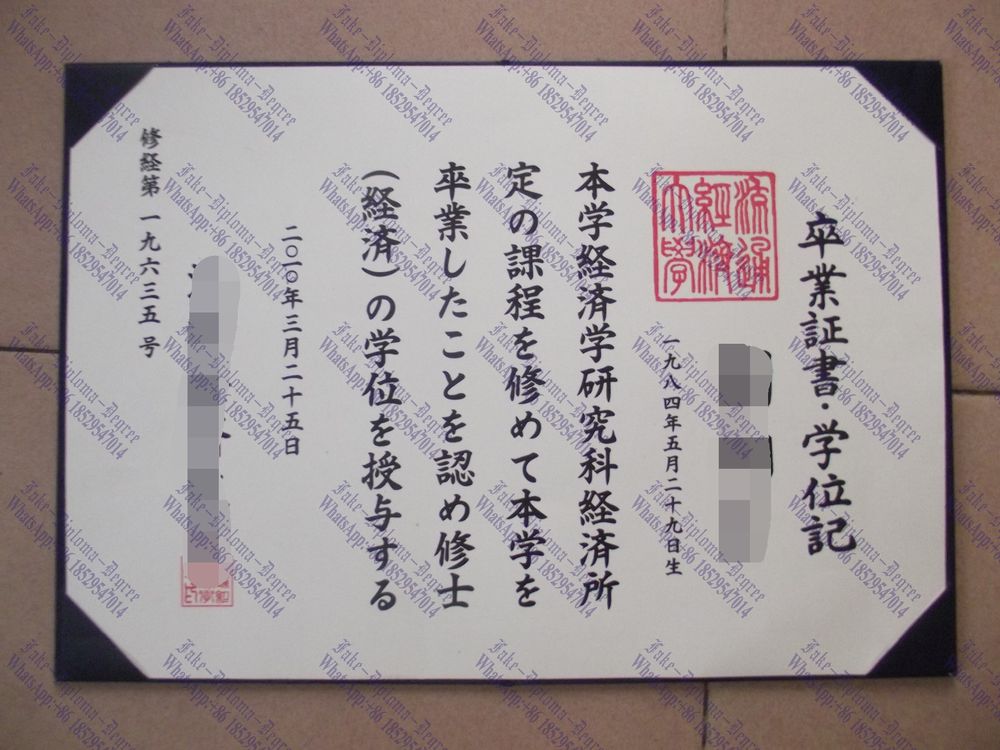 卒業証書・学位記
流通
經濟
大學
一九八四年五月二十九日生
本学経済学研究科経済所
定の課程を修めて本学を
卒業したことを認め修士
(経済)の学位を授与する
二〇一〇年三月二十五日
修経第一九六三五号
Fake-Diploma-Degree
WhatsApp:+86 18529547014